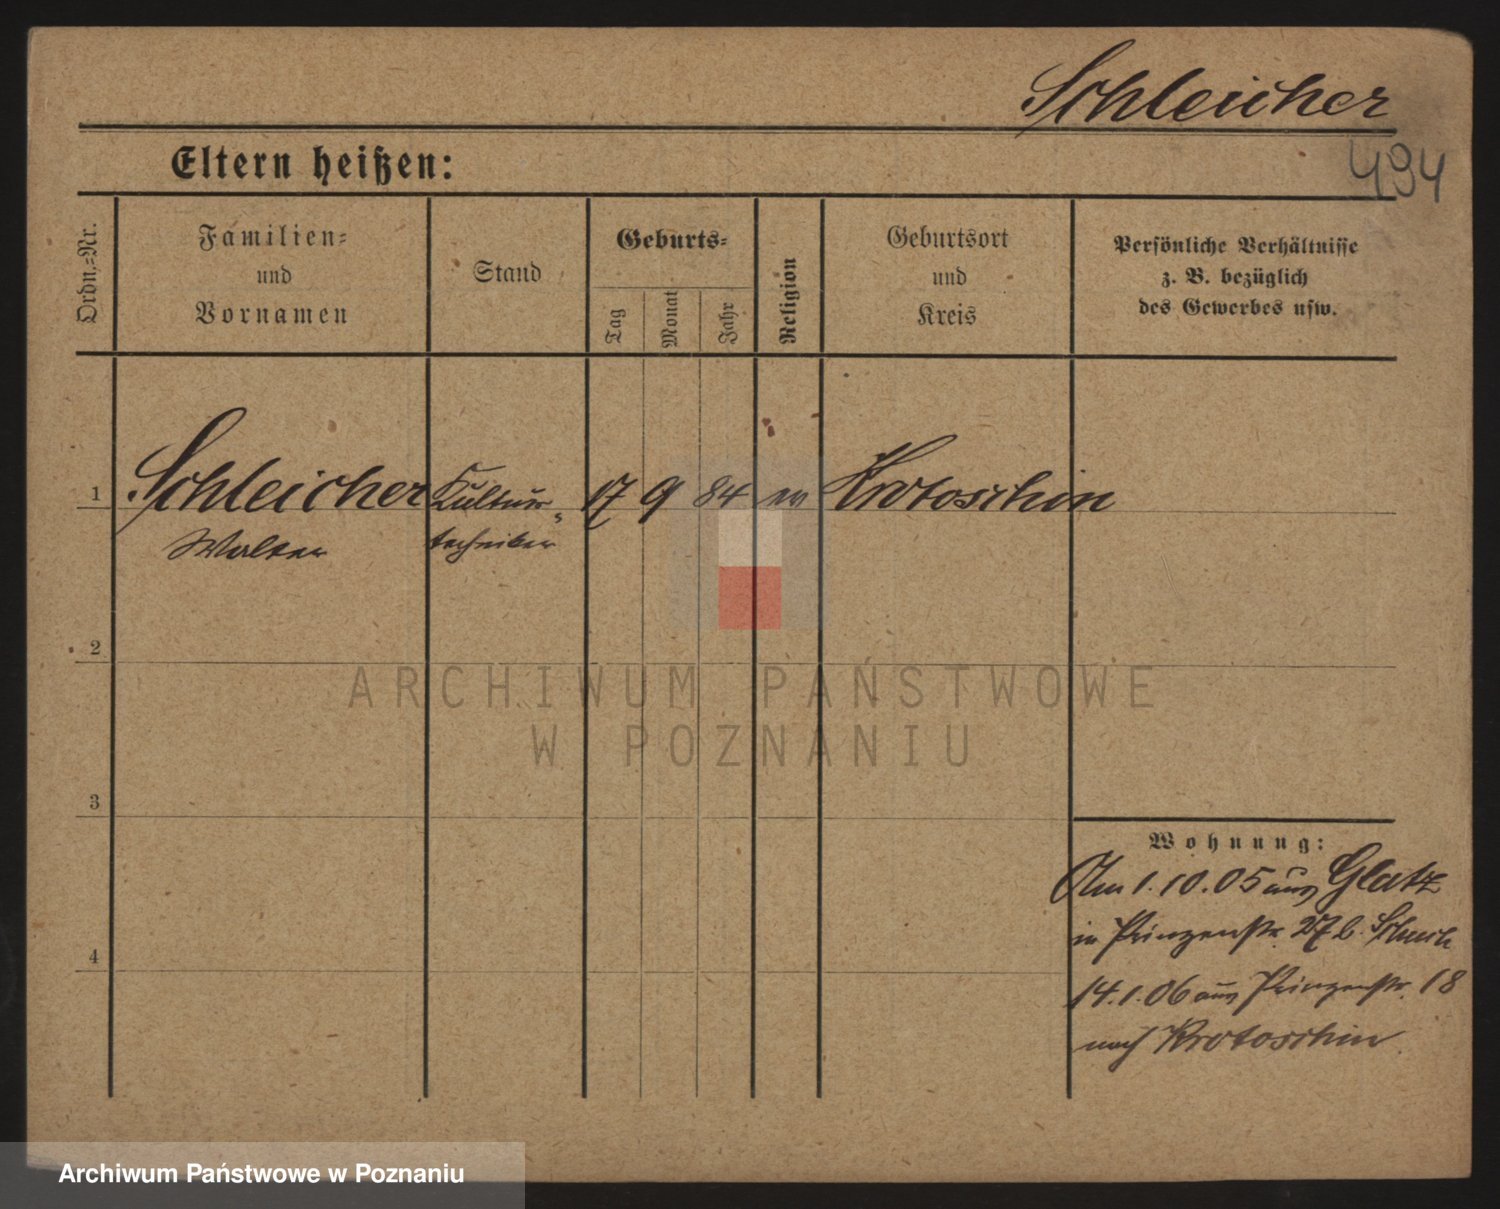 Schleicher
494
Eltern heißen:
Ordn.-Nr.
Familien-
und
Vornamen
Stand
Geburts-
Tag
Monat
Jahr
Religion
Geburtsort
und
Kreis
Persönliche Verhältnisse
z. B. bezüglich
des Gewerbes usw.
1
Schleicher Kultur- 17 9 84 ev Krotoschin
Walter techniker
2
ARCHIWUM PAŃSTWOWE
W POZNANIU
3
Wohnung:
Am 1.10.05 aus Glatz
in Prinzenstr. 27 b.
4
14.1.06 aus Prinzenstr. 18
nach Krotoschin
Archiwum Państwowe w Poznaniu